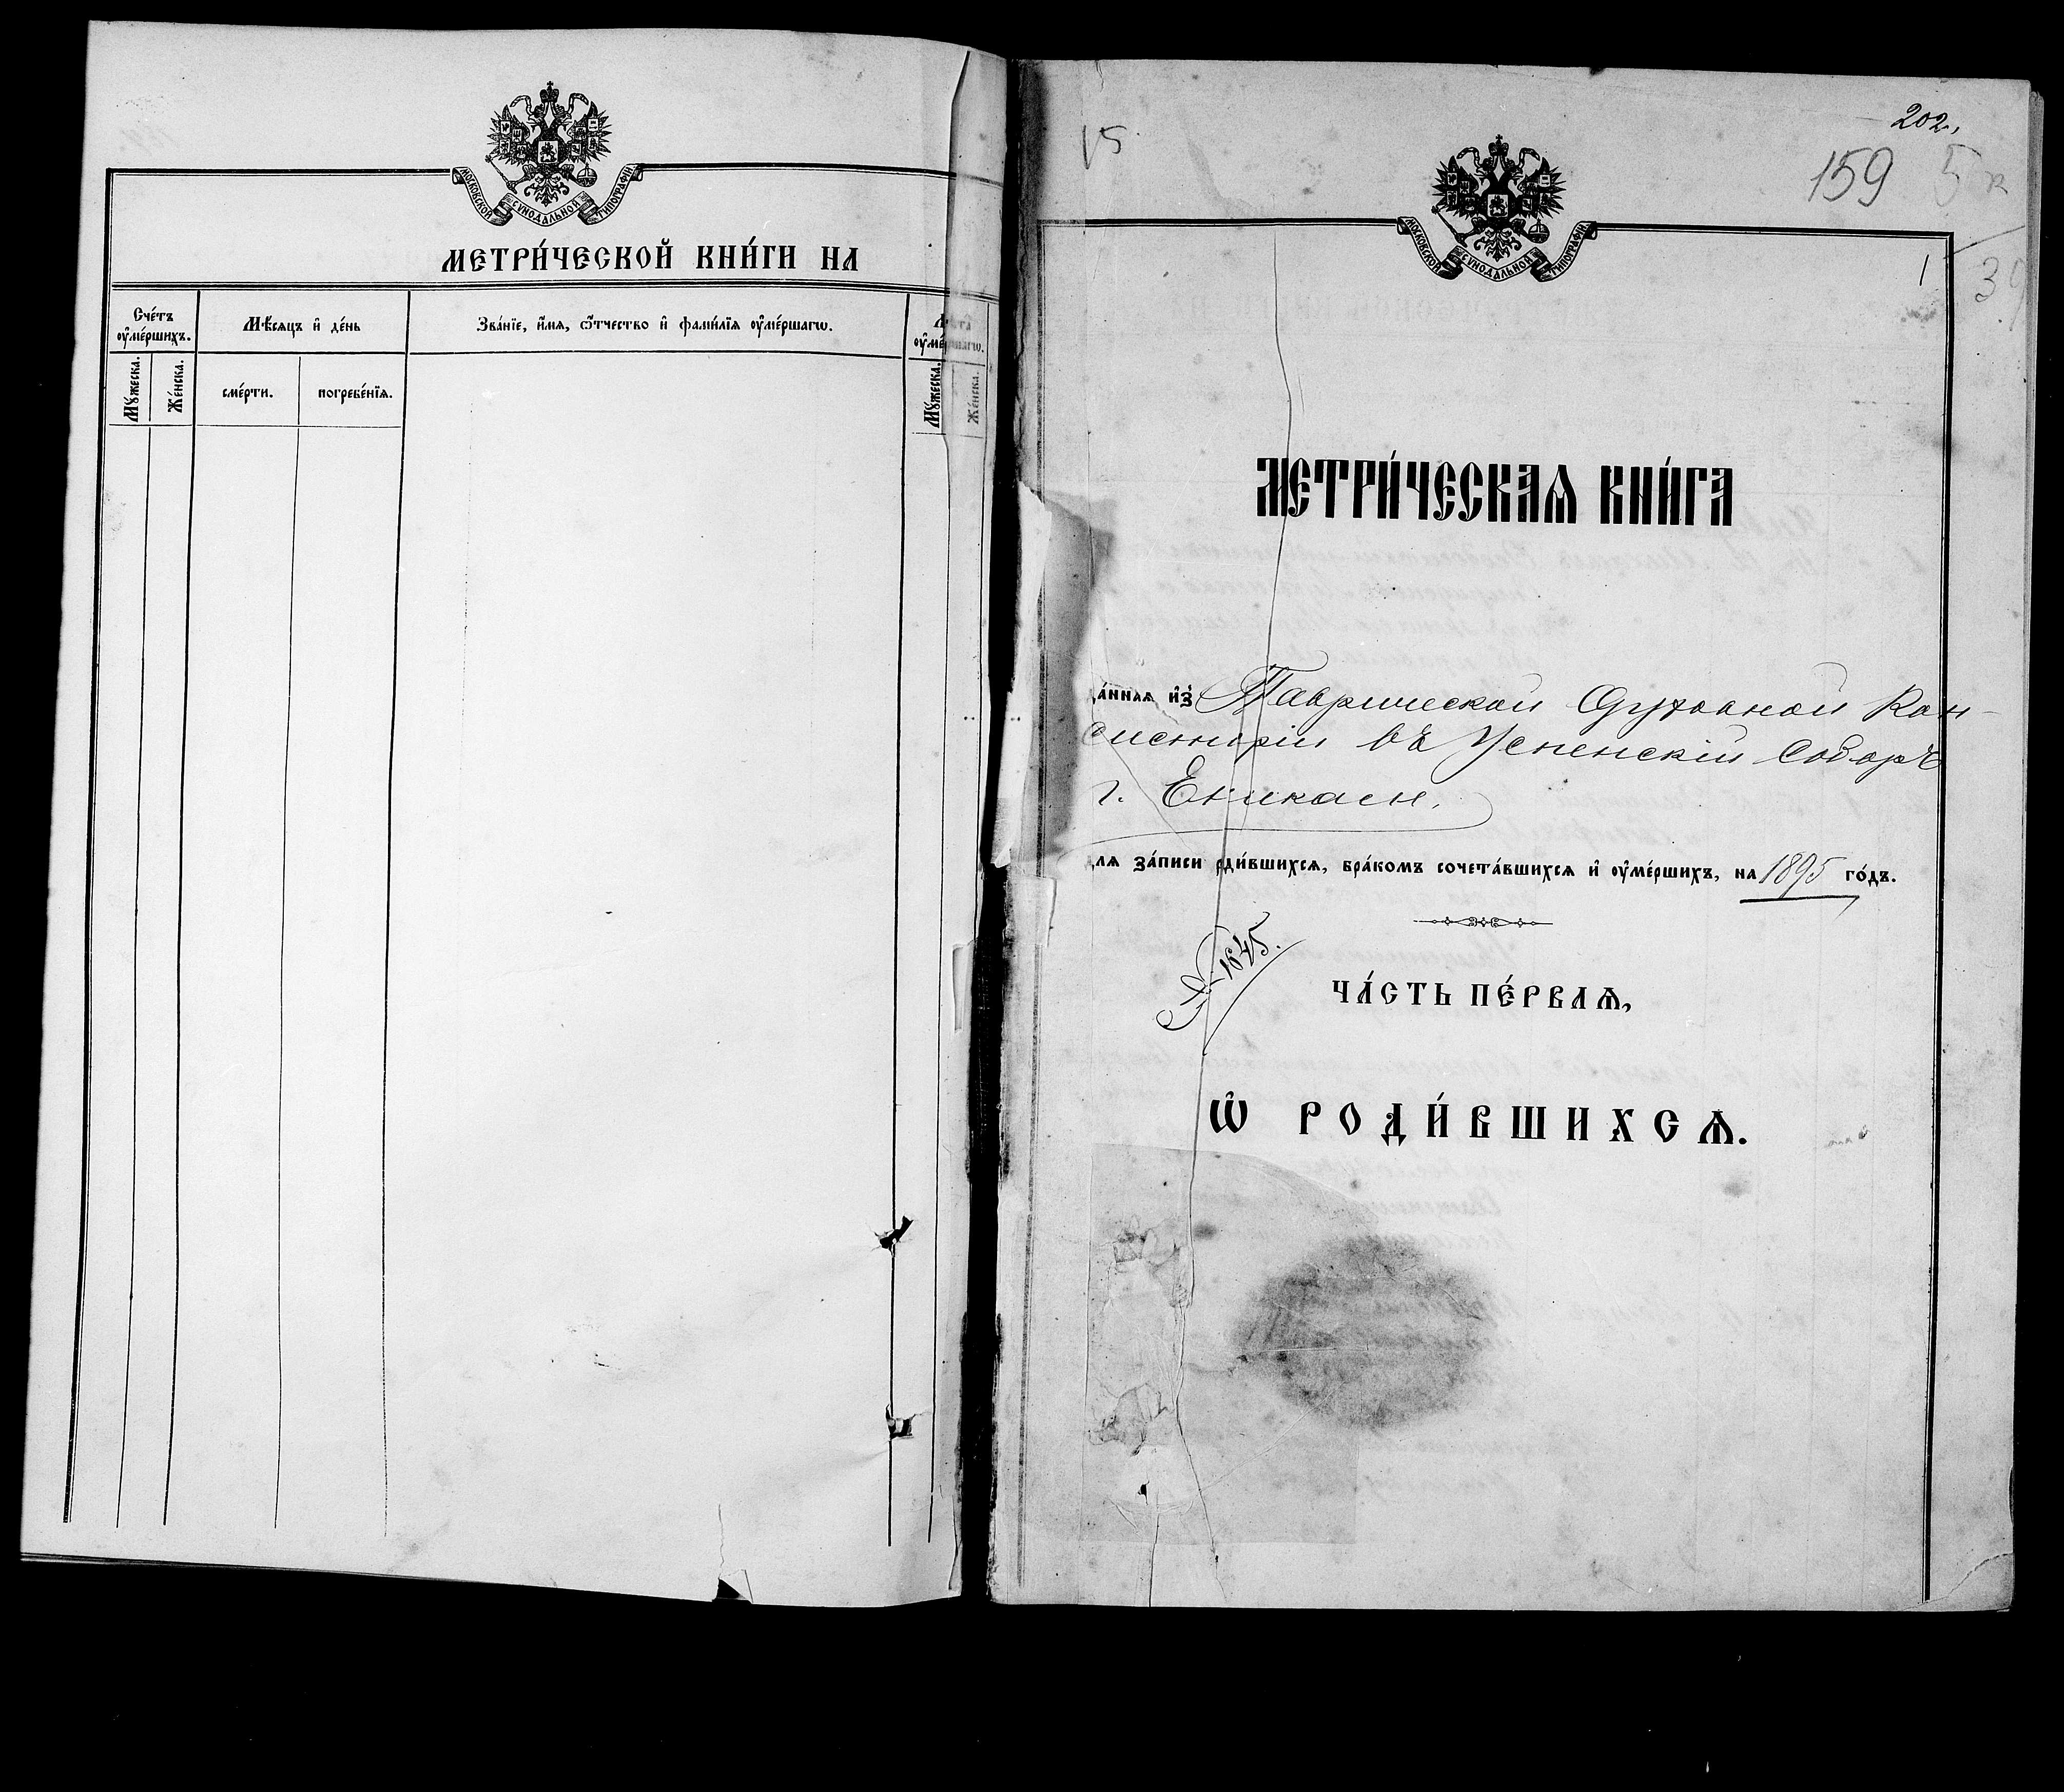 МОСКОВСКОЙ СѴНОДАЛЬНОЙ ТИПОГРАФІИ
МЕТРИ́ЧЕСКОЙ КНИ́ГИ НА
Сче́тъ ᲂу҆ме́ршихъ.
Мѣ́сяцъ и҆ де́нь
Зва́нїе, и҆́мѧ, ѻ҆́тчество и҆ фами́лїѧ ᲂу҆ме́ршагѡ.
Лѣ́та ᲂу҆ме́ршагѡ.
Мꙋ́жеска.
Же́нска.
сме́рти.
погребе́нїѧ.
Мꙋ́жеска.
Же́нска.
202.
159
МОСКОВСКОЙ СѴНОДАЛЬНОЙ ТИПОГРАФІИ
1
МЕТРИ́ЧЕСКАѦ КНИ́ГА
да́ннаѧ и҆з̾ Таврической Духовной Кон-
систоріи въ Успенскій Соборъ
г. Еникале.
длѧ за́писи рди́вшихсѧ, бра́комъ сочета́вшихсѧ и҆ ᲂу҆ме́ршихъ, на 1895 го́дъ.
№ 1645.
ЧА́СТЬ ПЕ́РВАѦ,
Ѡ҆ РОДИ́ВШИХСѦ.